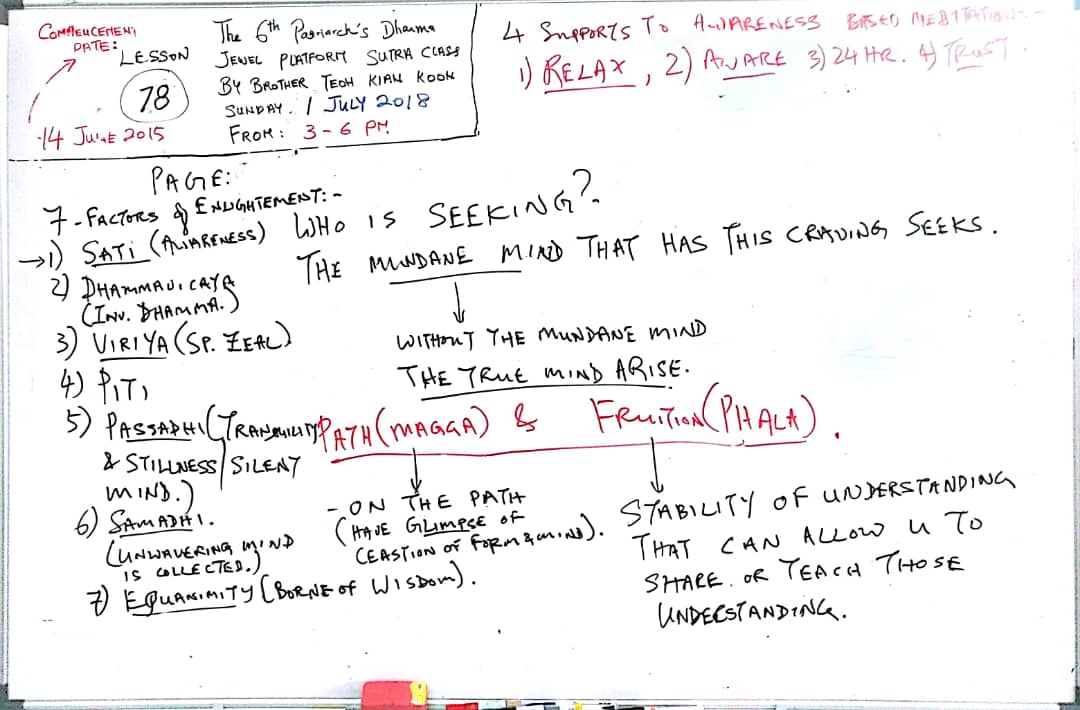 COMMENCEMENT
DATE:
14 JUNE 2015
LESSON
78
The 6th Patriarch's Dharma
JEWEL PLATFORM SUTRA CLASS
BY BROTHER TEOH KIAN KOON
SUNDAY. 1 JULY 2018
FROM: 3-6 PM
4 SUPPORTS TO AWARENESS BASED MEDITATION:-
1) RELAX, 2) AWARE 3) 24 HR. 4) TRUST.
PAGE:
7-FACTORS of ENLIGHTEMENT:-
→1) SATI (AWARENESS)
2) DHAMMAVICAYA
(INV. DHAMMA.)
3) VIRIYA (SP. ZEAL)
4) PITI
5) PASSADHI (TRANQUILITY
& STILLNESS/SILENT
MIND.)
6) SAMADHI.
(UNWAVERING MIND
IS COLLECTED.)
7) EQUANIMITY (BORNE OF WISDOM).
WHO IS SEEKING?
THE MUNDANE MIND THAT HAS THIS CRAVING SEEKS.
WITHOUT THE MUNDANE MIND
THE TRUE MIND ARISE.
PATH (MAGGA) & FRUITION (PHALA).
- ON THE PATH
(HAVE GLIMPSE OF
CEASTION OF FORM & MIND).
STABILITY OF UNDERSTANDING
THAT CAN ALLOW U TO
SHARE. OR TEACH THOSE
UNDERSTANDING.